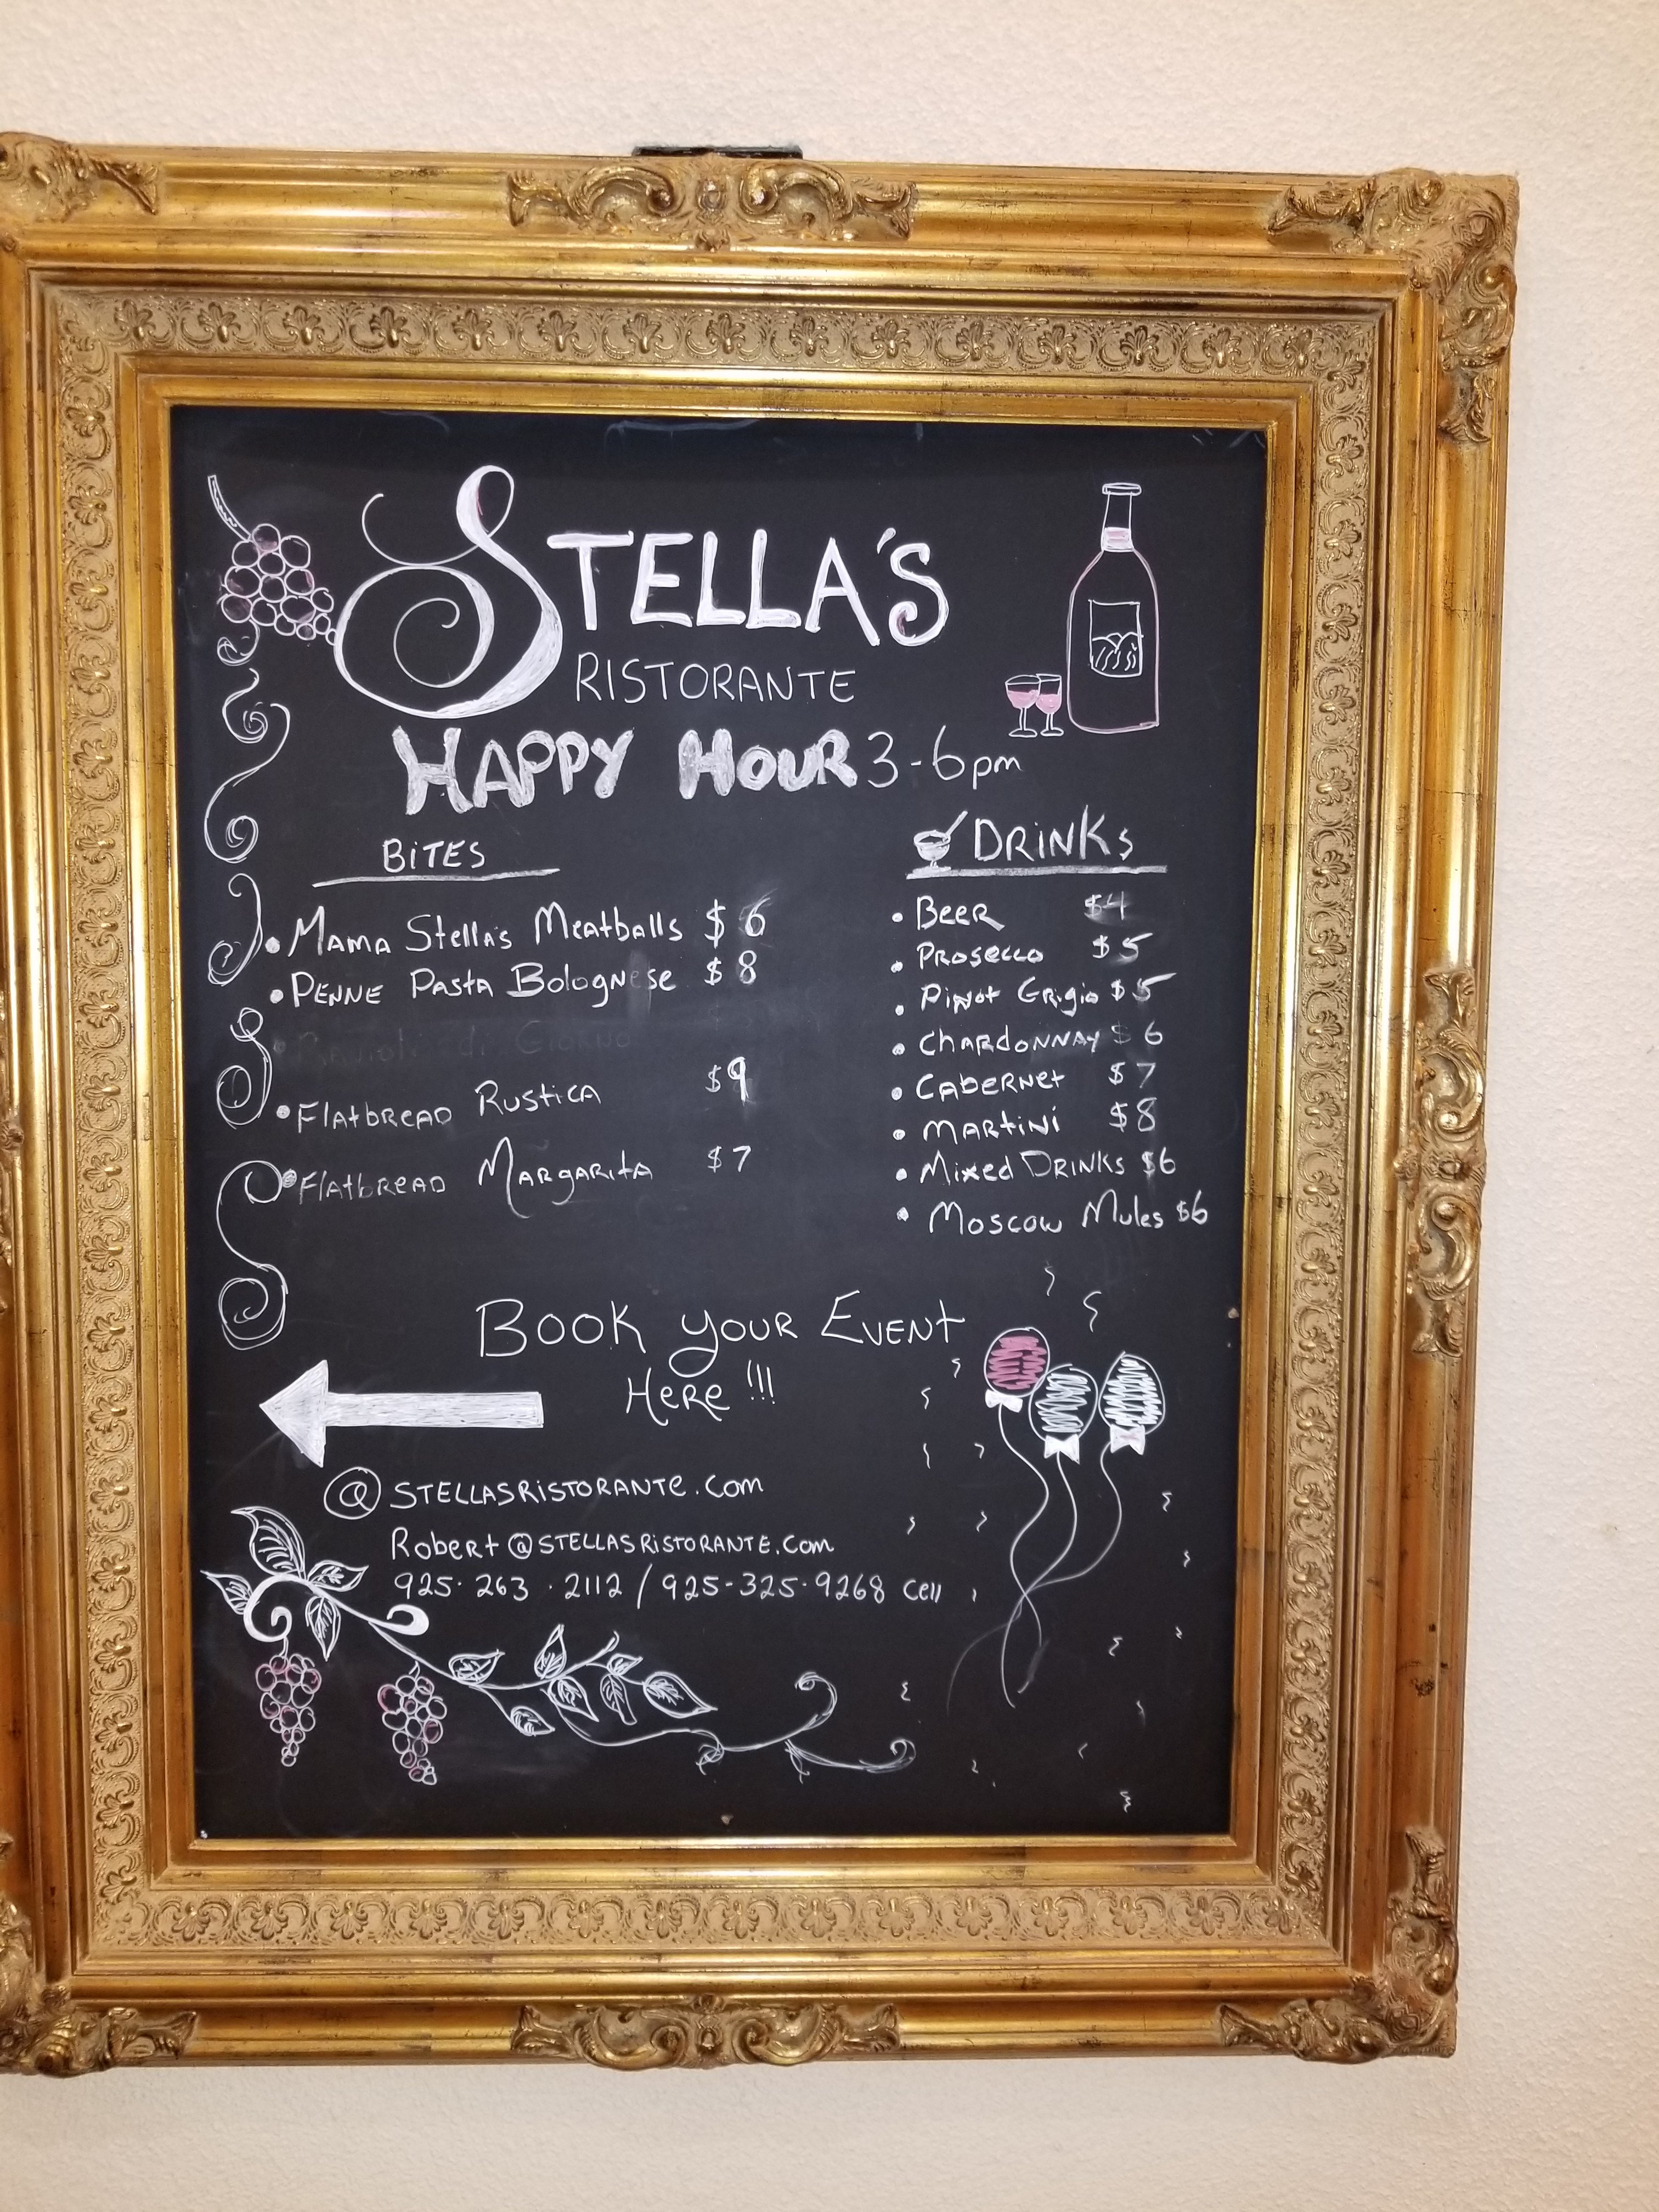 STELLA'S
RISTORANTE
HAPPY HOUR 3-6pm
BITES
• MAMA Stella's Meatballs $6
• PENNE PASTA Bolognese $8
• Ravioli di Giorno
• Flatbread Rustica $9
• Flatbread Margarita $7
DRINKS
• Beer $4
• Prosecco $5
• Pinot Grigio $5
• Chardonnay $6
• Cabernet $7
• Martini $8
• Mixed Drinks $6
• Moscow Mules $6
BOOK YOUR EVENT
HERE!!!
@STELLASRISTORANTE.COM
Robert@STELLASRISTORANTE.COM
925.263.2112 / 925-325-9268 Cell